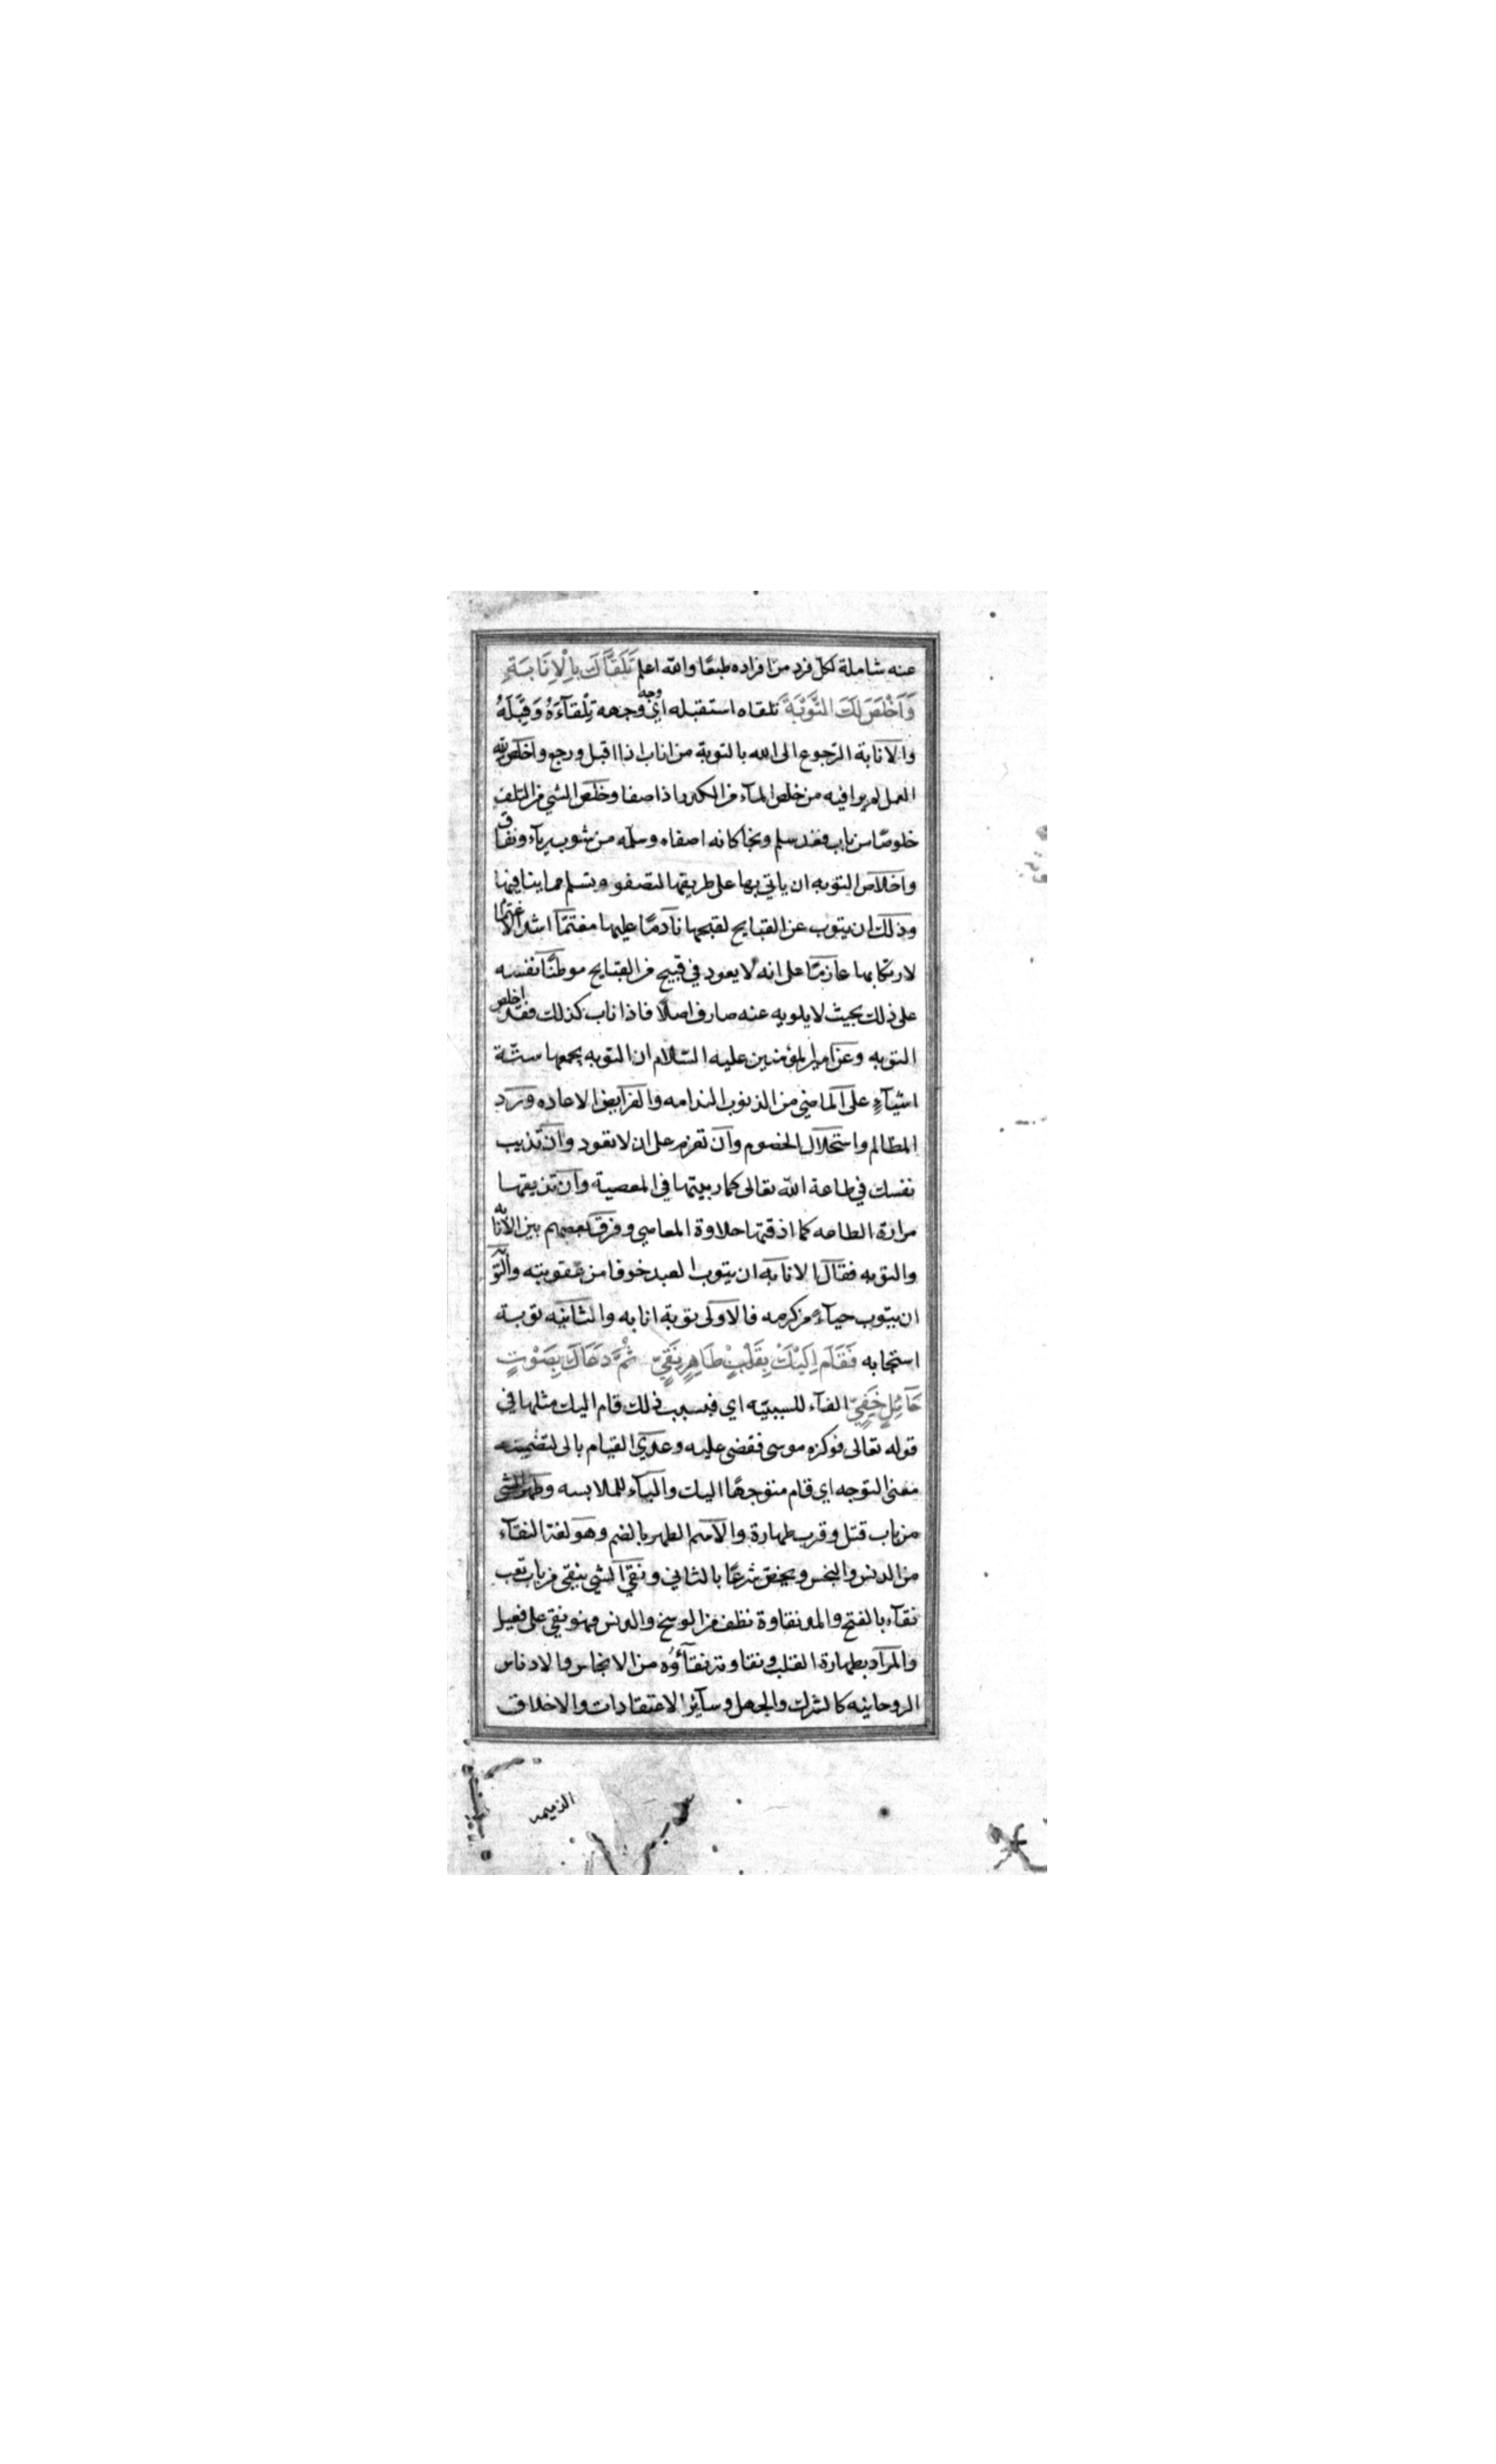 عنه شاملة لكل فرد من افراده طبعًا والله اعلم تَلَقَّاكَ بِالْاِنَابَةِ
وَاَخْلَصَ لَكَ التَّوْبَةَ تلقاه استقبله اي وجه وجهه تِلْقآءَهُ وَقِبَلَهُ
والانابة الرجوع الى الله بالتوبة من اناب اذا اقبل ورجع واخلص لله
العمل لم يرا فيه من خلص المآء من الكدر اذا صفا وخلص الشي من التلف
خلوصًا من باب قعد سلم ونجا كانه اصفاه وسلمه من شوب ريآء ونفاق
واخلاص التوبه ان ياتي بها على طريقها لتصفو وتسلم مما ينافيها
وذلك ان يتوب عن القبايح لقبحها نادمًا عليها مغتمًا اشد الاغتمام
لارتكابها عازمًا على انه لا يعود في قبيح من القبايح موطنًا نفسه
على ذلك بحيث لا يلويه عنه صارف اصلًا فاذا تاب كذلك فقد اخلص
التوبه وعن امير المؤمنين عليه السّلام ان التوبه يجمعها ستّة
اشيآءٍ على الماضي من الذنوب الندامه وللفرايض الاعاده وردّ
المظالم واستحلال الخصوم وان تعزم على ان لا تعود وان تذيب
نفسك في طاعة الله تعالى كما ربيتها في المعصية وان تذيقها
مرارة الطاعه كما اذقتها حلاوة المعاصي وفرق بعضهم بين الانابه
والتوبه فقال الانابه ان يتوب العبد خوفا من عقوبته والتوبة
ان يتوب حيآءً من كرمه فالاولى توبة انابه والثانيه توبة
استجابه فَقَامَ اِلَيْكَ بِقَلْبٍ طَاهِرٍ نَقِيٍّ ثُمَّ دَعَاكَ بِصَوْتٍ
حَآئِلٍ خَفِيٍّ الفآء للسببيّه اي فبسبب ذلك قام اليك مثلها في
قوله تعالى فوكزه موسى فقضى عليه وعدّي القيام بالى لتضمينه
معنى التوجه اي قام متوجهًا اليك والبآء للملابسه وطهر الشي
من باب قتل وقرب طهارة والاسم الطهر بالضم وهو لغة النقآء
من الدنس والنجس ويختص شرعًا بالثاني ونقي الشي ينقى من باب تعب
نقآء بالفتح والمد ونقاوة نظف من الوسخ والدنس وهو نقي على فعيل
والمراد بطهارة القلب ونقاوته نقآؤه من الانجاس والادناس
الروحانيه كالشرك والجهل وسآئر الاعتقادات والاخلاق
الذميمه